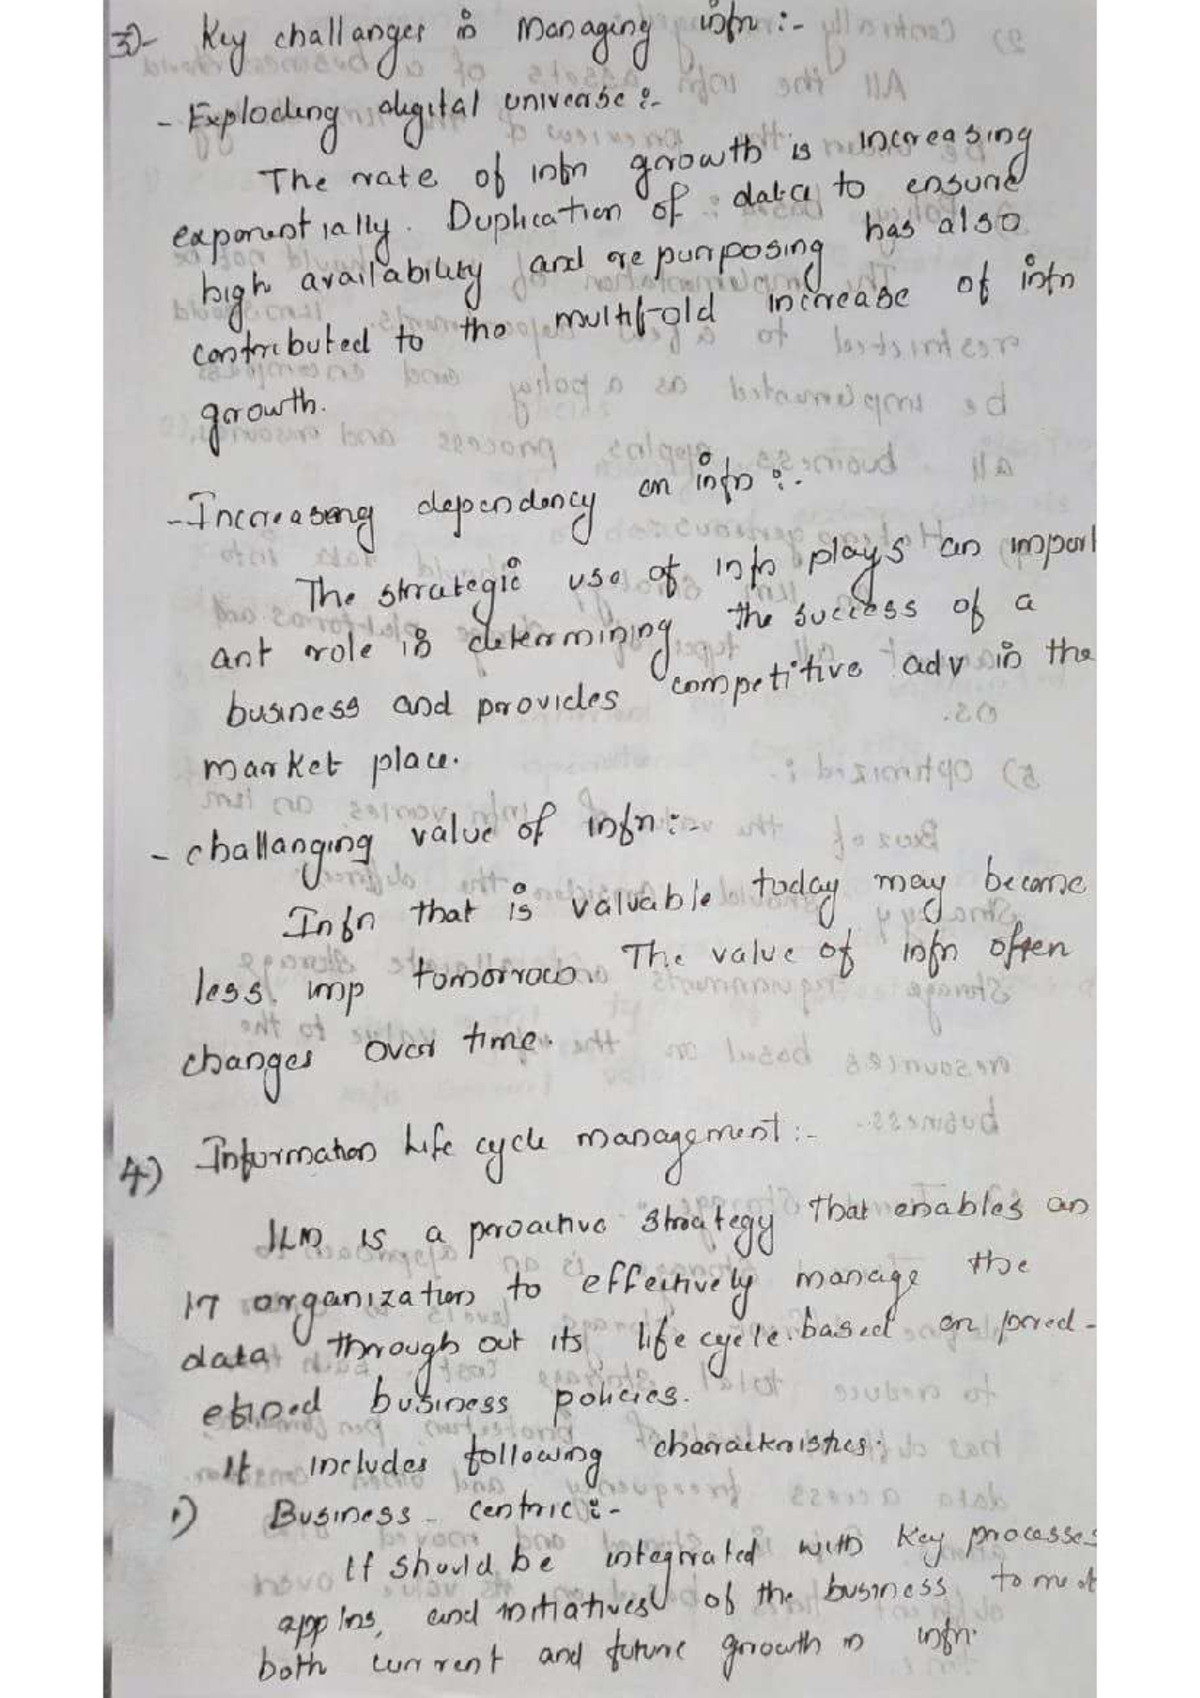 3)- Key challanges in Managing infn :-
- Exploding digital universe :-
The rate of infn growth is increasing
exponentially. Duplication of data to ensure
high availability and repurposing has also
contributed to the multifold increase of infn
growth.
- Increaseng dependency on infn :-
The strategic use of infn plays an import
ant role in determining the success of a
business and provides competitive adv in the
market place.
- challanging value of infn :-
Infn that is valuable today may become
less imp tomorrow. The value of infn often
changes over time.
4) Information Life cycle management :-
ILM is a proactive strategy that enables an
IT organization to effectively manage the
data through out its life cycle based on pred-
efined business policies.
It includes following characteristics.
1) Business - centric :-
It should be integrated with key processes
applns, and initiatives of the business to meet
both current and future growth in infn.